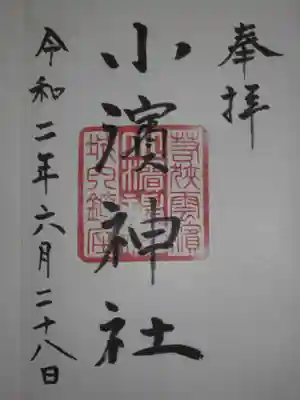 奉拝
小濱神社
令和二年六月二十八日